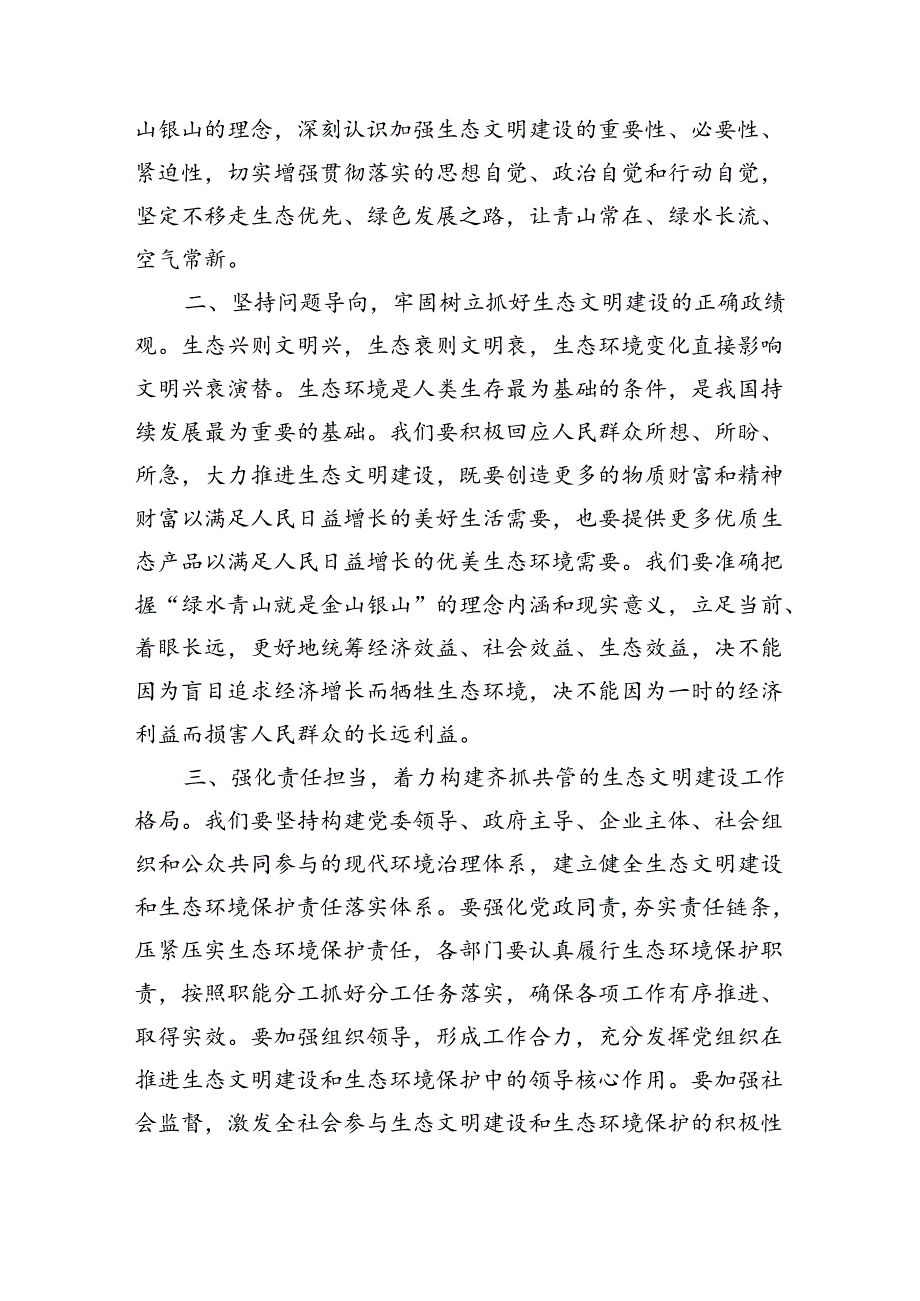 山银山的理念，深刻认识加强生态文明建设的重要性、必要性、
紧迫性，切实增强贯彻落实的思想自觉、政治自觉和行动自觉，
坚定不移走生态优先、绿色发展之路，让青山常在、绿水长流、
空气常新。
二、坚持问题导向，牢固树立抓好生态文明建设的正确政绩
观。生态兴则文明兴，生态衰则文明衰，生态环境变化直接影响
文明兴衰演替。生态环境是人类生存最为基础的条件，是我国持
续发展最为重要的基础。我们要积极回应人民群众所想、所盼、
所急，大力推进生态文明建设，既要创造更多的物质财富和精神
财富以满足人民日益增长的美好生活需要，也要提供更多优质生
态产品以满足人民日益增长的优美生态环境需要。我们要准确把
握“绿水青山就是金山银山”的理念内涵和现实意义，立足当前、
着眼长远，更好地统筹经济效益、社会效益、生态效益，决不能
因为盲目追求经济增长而牺牲生态环境，决不能因为一时的经济
利益而损害人民群众的长远利益。
三、强化责任担当，着力构建齐抓共管的生态文明建设工作
格局。我们要坚持构建党委领导、政府主导、企业主体、社会组
织和公众共同参与的现代环境治理体系，建立健全生态文明建设
和生态环境保护责任落实体系。要强化党政同责，夯实责任链条，
压紧压实生态环境保护责任，各部门要认真履行生态环境保护职
责，按照职能分工抓好分工任务落实，确保各项工作有序推进、
取得实效。要加强组织领导，形成工作合力，充分发挥党组织在
推进生态文明建设和生态环境保护中的领导核心作用。要加强社
会监督，激发全社会参与生态文明建设和生态环境保护的积极性